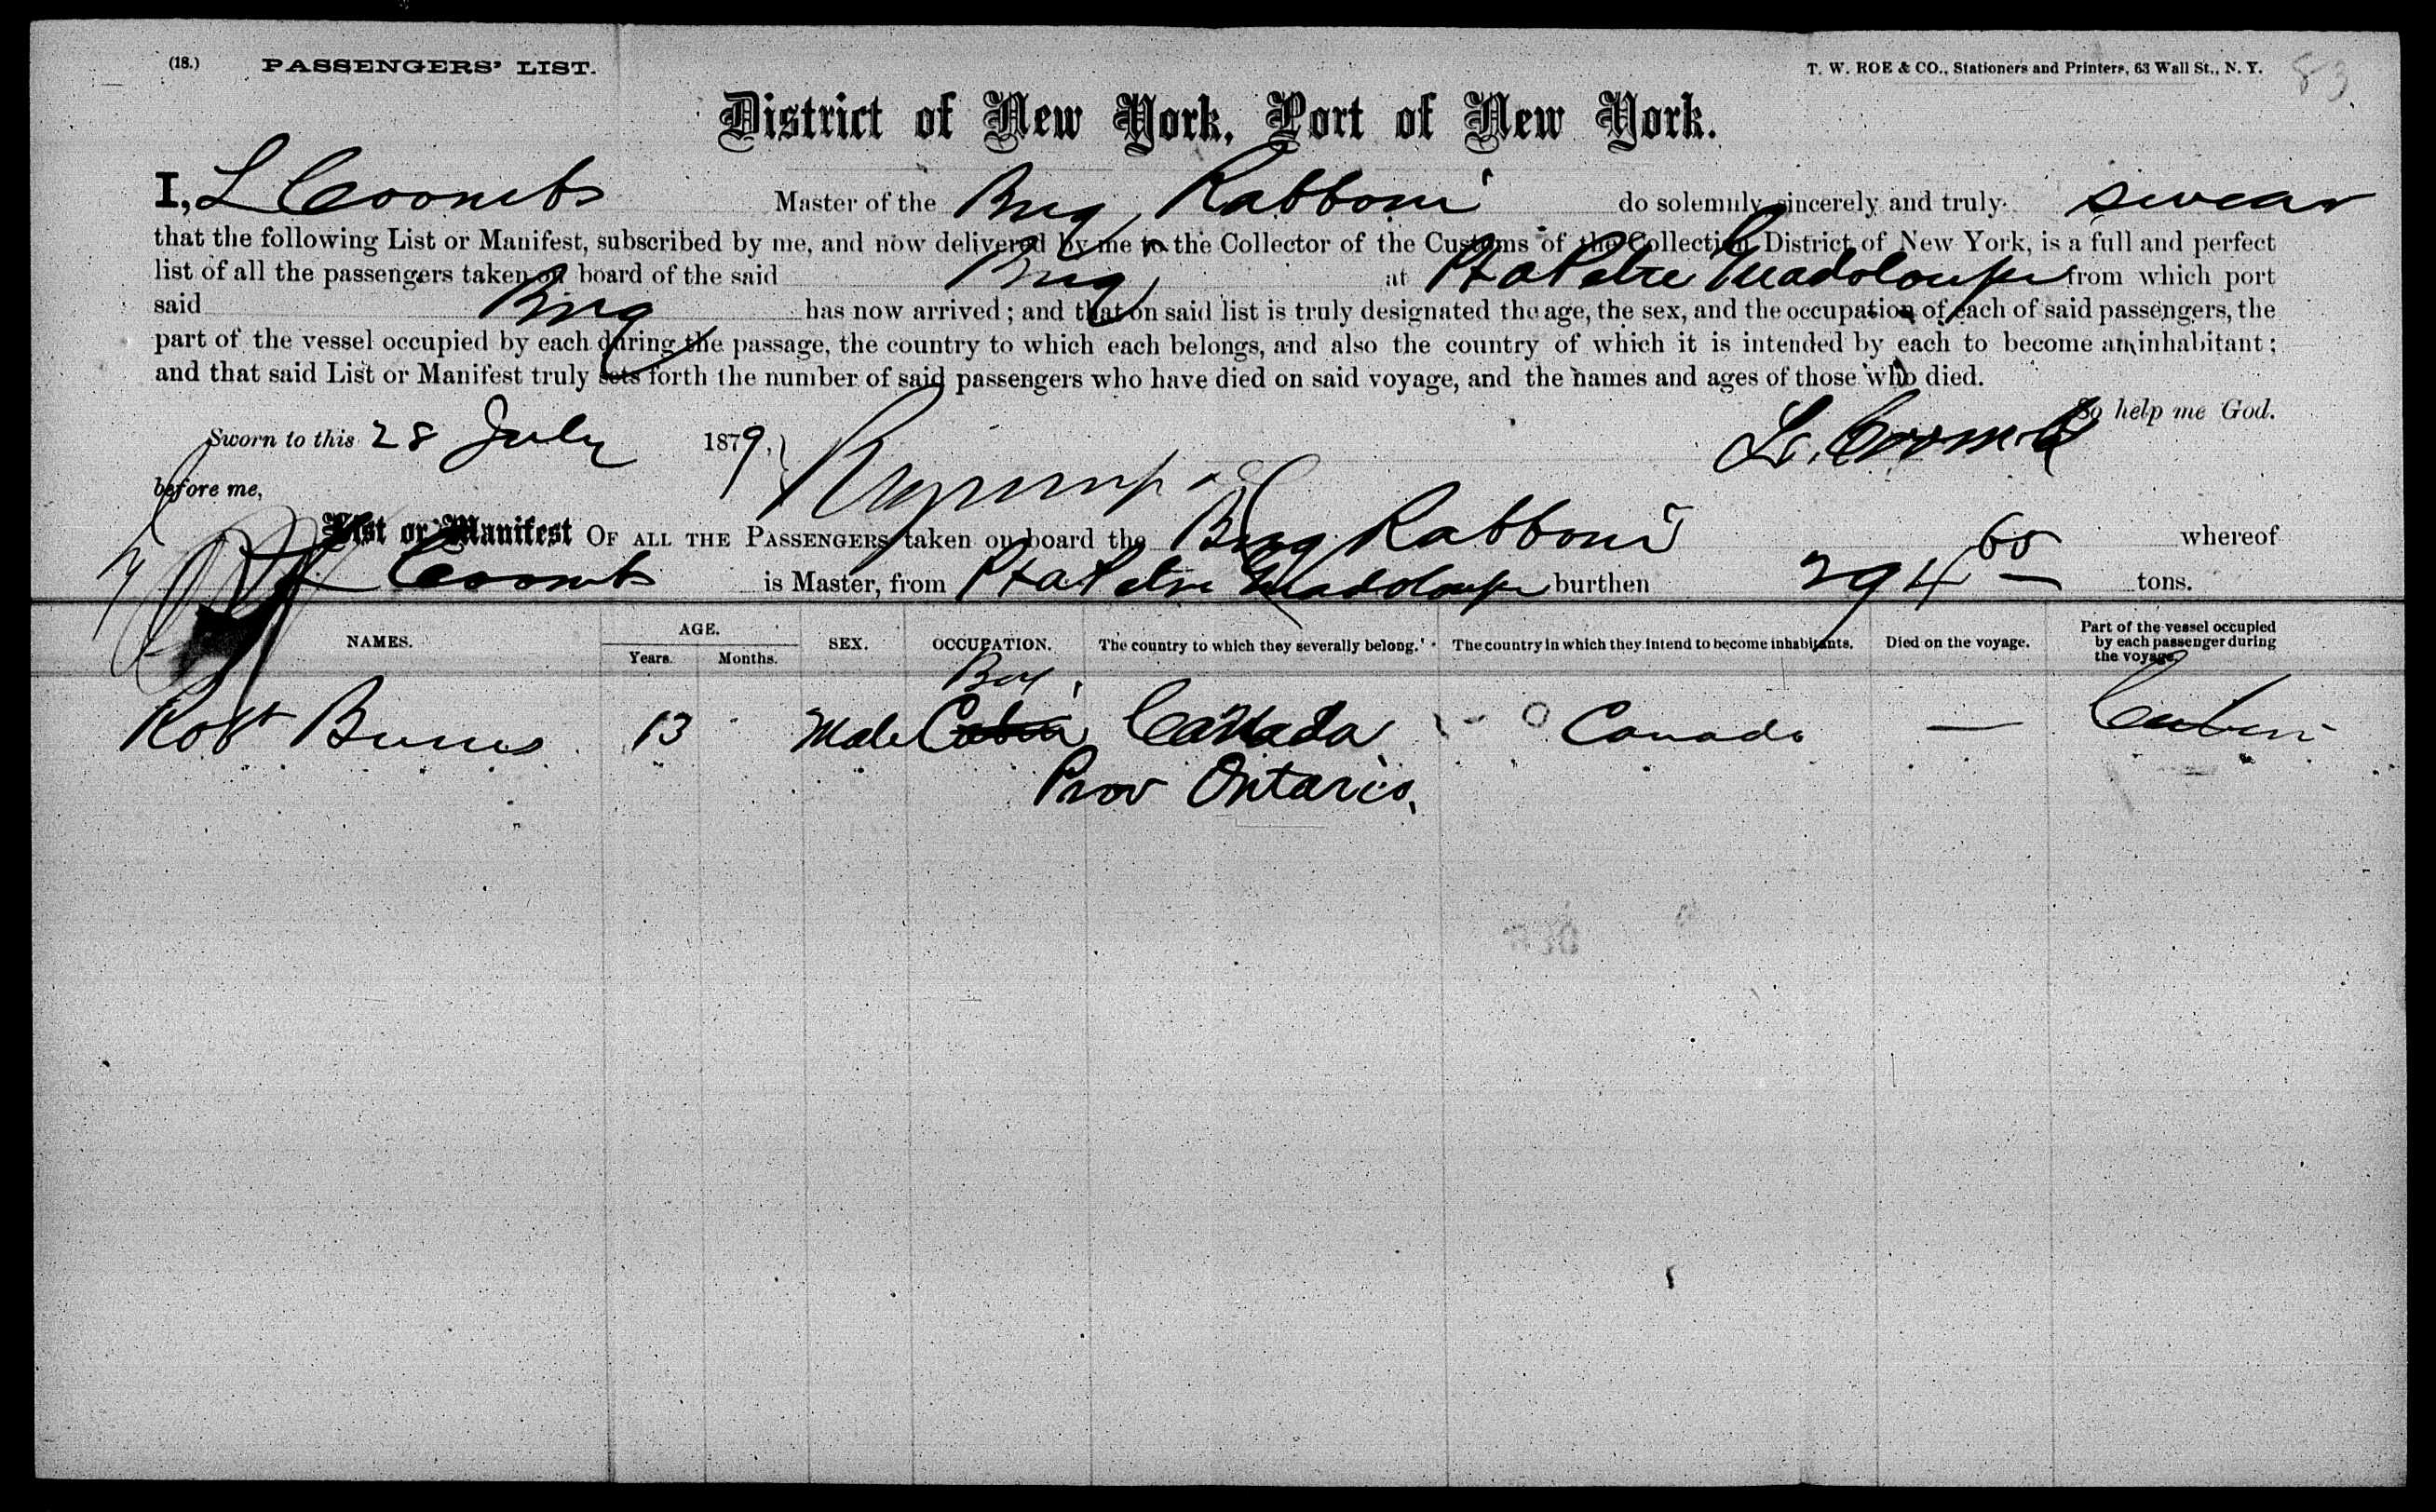 (18.) PASSENGERS' LIST. T. W. ROE & CO., Stationers and Printers, 63 Wall St., N. Y. 83
District of New York, Port of New York.
I, L Coombs Master of the Brig Rabboni do solemnly, sincerely and truly swear
that the following List or Manifest, subscribed by me, and now delivered by me to the Collector of the Customs of the Collection District of New York, is a full and perfect
list of all the passengers taken on board of the said Brig at Pt a Petre Guadoloupe from which port
said Brig has now arrived; and that on said list is truly designated the age, the sex, and the occupation of each of said passengers, the
part of the vessel occupied by each during the passage, the country to which each belongs, and also the country of which it is intended by each to become an inhabitant;
and that said List or Manifest truly sets forth the number of said passengers who have died on said voyage, and the names and ages of those who died.
So help me God.
Sworn to this 28 July 1879, L. Coombs
before me,
List or Manifest OF ALL THE PASSENGERS taken on board the Brig Rabboni whereof
L Coombs is Master, from Pt a Petre Guadoloupe burthen 294 65 tons.
NAMES. AGE. SEX. OCCUPATION. The country to which they severally belong. The country in which they intend to become inhabitants. Died on the voyage. Part of the vessel occupied by each passenger during the voyage.
Years. Months.
Boy
Robt Burns 13 Male Cabin Canada Canada — Cabin
Prov Ontario